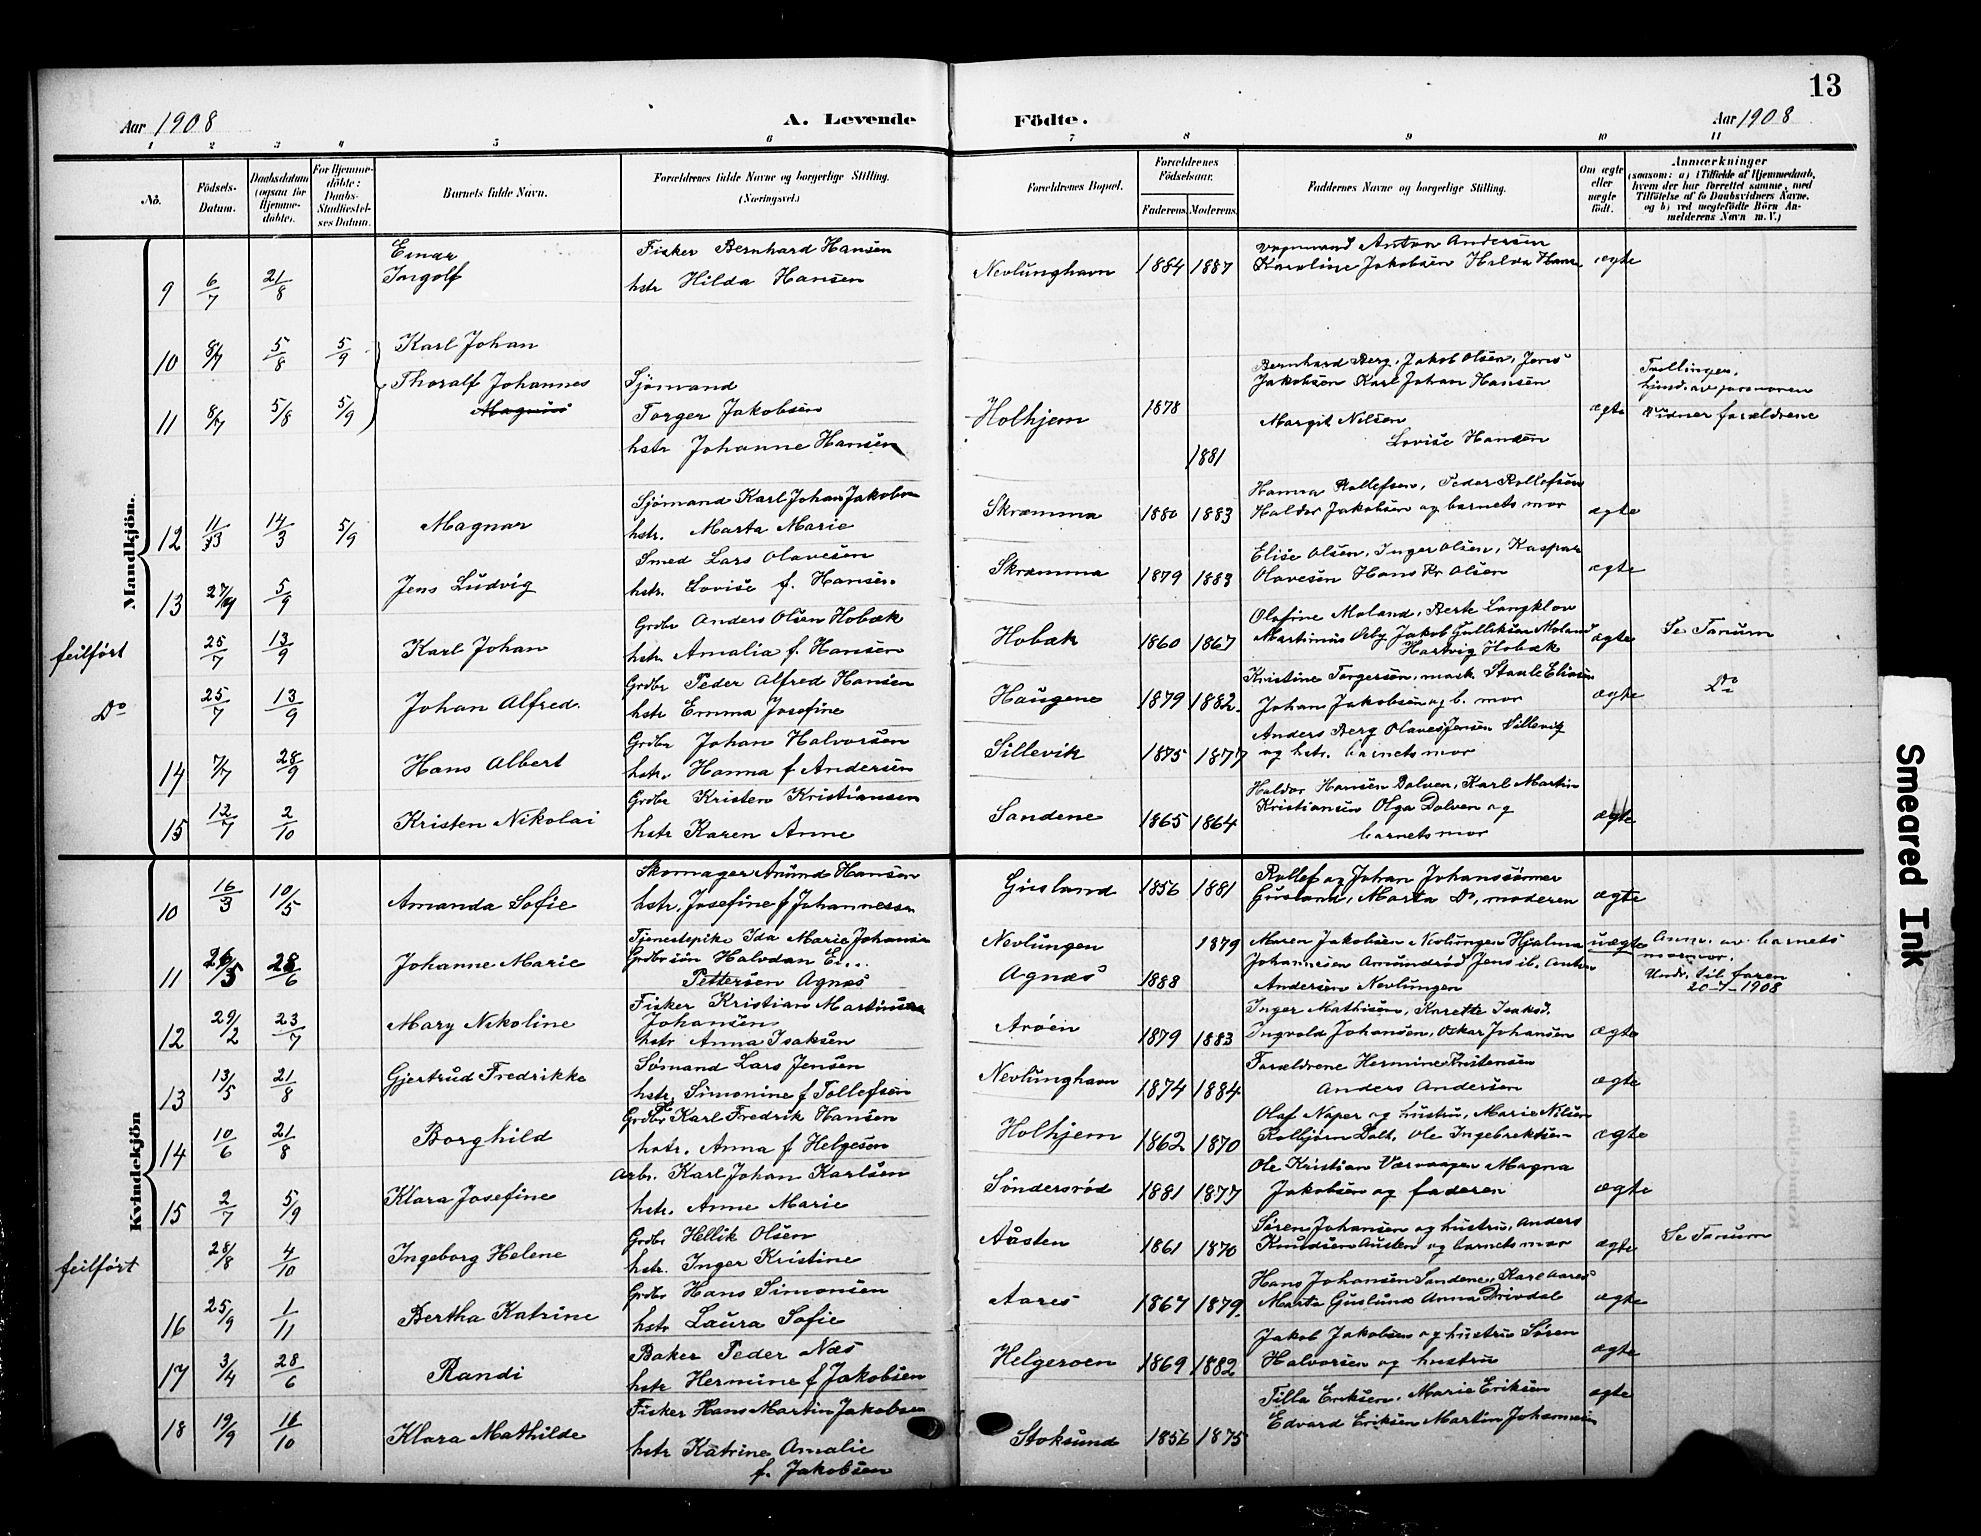 13
Aar 1908
A. Levende
Födte.
Aar 1908
1 2 3 4 5 6 7 8 9 10 11
No.
Födsels-
Datum.
Daabsdatum
(ogsaa for
Hjemme-
döbte).
For Hjemme-
döbte:
Daabs-
Stadfæstel-
ses Datum.
Barnets fulde Navn.
Forældrenes fulde Navne og borgerlige Stilling.
(Næringsvei.)
Forældrenes Bopæl.
Forældrenes
Födselsaar.
Faderens. Moderens.
Faddernes Navne og borgerlige Stilling.
Om ægte
eller
uægte
födt.
Anmærkninger
(saasom: a) i Tilfælde af Hjemmedaab,
hvem der har forrettet samme, med
Tilföielse af to Daabsvidners Navne,
og b) ved uægtefödte Börn An-
melderens Navn m. V.)
Mandkjön.
9 6/7 21/8 Einar
Ingolf
Fisker Bernhard Hansen
hstr Hilda Hansen
Nevlunghavn 1884 1887
Anton Andersen
Karoline Jakobsen Hilda Hans ægte
10 8/7 5/8 5/9 Karl Johan
11 8/7 5/8 5/9 Thoralf Johannes
Magnus
Sjömand
Torger Jakobsen
hstr Johanne Hansen
Holhjem 1878
1881
Bernhard Berg, Jakob Olsen, Jens
Jakobsen Karl Johan Hansen
Margit Nilsen
Lovise Hansen
ægte
Tvillinger,
hjmd. av jormoren
Vidner forældrene
12 11/3 14/3 5/9 Magnar
Sjömand Karl Johan Jakobsen
hstr. Marta Marie
Skræmma 1880 1883
Hanna Rollefsen, Peder Rollefsen
Haldor Jakobsen og barnets mor ægte
13 5/9 Jens Ludvig
Smed Lars Olavesen
hstr. Lovise f. Hansen
Skræmma 1879 1883
Elise Olsen, Inger Olsen, Kaspar
Olavesen Hans Kr Olsen ægte
feilført 25/7 13/9 Karl Johan
Grdbr Anders Olsen Hobæk
hstr. Amalia f. Hansen
Hobæk 1860 1867
Olafine Moland, Berte Langklov
Martinus Orby Jakob Gulliksen Moland
Hartvig Hobæk
ægte Se Tanum
Do 25/7 13/9 Johan Alfred
Grdbr Peder Alfred Hansen
hstr Emma Josefine
Haugene 1879 1882
Kristine Torgersen, mask. Staale Eliasen
Johan Jakobsen og b. mor
ægte Do
14 7/7 28/9 Hans Albert
Grdbr Johan Halvorsen
hstr. Hanna f Andersen
Sillevik 1875 1877
Anders Berg Olaves Jensen Sillevik
og hstr. barnets mor
15 12/7 2/10 Kristen Nikolai
Grdbr Kristen Kristiansen
hstr Karen Anne
Sandene 1865 1864
Haldor Hansen Dolven, Karl Martin
Kristiansen Olga Dolven og
barnets mor
ægte
Kvindekjön
10 16/3 10/5 Amanda Sofie
Skomager Amund Hansen
hstr. Josefine f Johannessen
Gusland 1856 1881
Rollef og Johan Johanssönner
Gusland, Marta Do, moderen ægte
11 26/5 28/6 Johanne Marie
Tjenestepike Ida Marie Johansen
Grdbrsön Halvdan
Pettersen Agnes
Nevlungen 1879
Agnæs 1888
Maren Jakobsen Nevlungen Hjalmar
Johannesen Amundröd Jens il. Anton
Andersen Nevlungen
uægte Anm. av barnets
mormor.
Undr. til faren
20-7-1908
12 29/2 23/7 Mary Nikoline
Fisker Kristian Martinius
Johansen
hstr Anna Isaksen
Aröen 1879 1883
Inger Mathisen, Karette Isaksd.
Ingvald Johansen, Oskar Johansen ægte
13 13/5 21/8 Gjertrud Fredrikke
Sömand Lars Jensen
hstr. Simonine f Tollefsen
Nevlunghavn 1874 1884
Forældrene Hermine Kristensen
Anders Andersen
ægte
14 10/6 21/8 Borghild
Grdbr Karl Fredrik Hansen
hstr. Anna f Helgesen
Holhjem 1862 1870
Olaf Naper og hustru, Marie Nilsen
Kolbjörn Dalt, Ole Ingebrektsen ægte
15 2/7 5/9 Klara Josefine
Arbr. Karl Johan Karlsen
hstr. Anne Marie
Söndersröd 1881 1877
Ole Kristian Værvaagen Magna
Jakobsen og faderen ægte
feilført 28/8 4/10 Ingeborg Helene
Grdbr Hellik Olsen
hstr. Inger Kristine
Aåsten 1861 1870
Sören Johansen og hustru, Anders
Knudsen Austen og barnets mor ægte
Se Tanum
16 25/9 1/11 Bertha Katrine
Grdbr Hans Simonsen
hstr Laura Sofie
Aares 1867 1879
Hans Johansen Sandene, Karl Aares
Marta Guslund Anna Drivdal ægte
17 3/4 28/6 Randi
Baker Peder Næs
hstr Hermine f Jakobsen
Helgeroen 1869 1882
Jakob Jakobsen og hustru Sören
Halvorsen og hustru ægte
18 19/9 16/10 Klara Mathilde
Fisker Hans Martin Jakobsen
hstr Katrine Amalie
f. Jakobsen
Stoksund 1856 1875
Tilla Eriksen, Marie Eriksen ægte
Edvard Eriksen Martin Johannesen
Smeared Ink